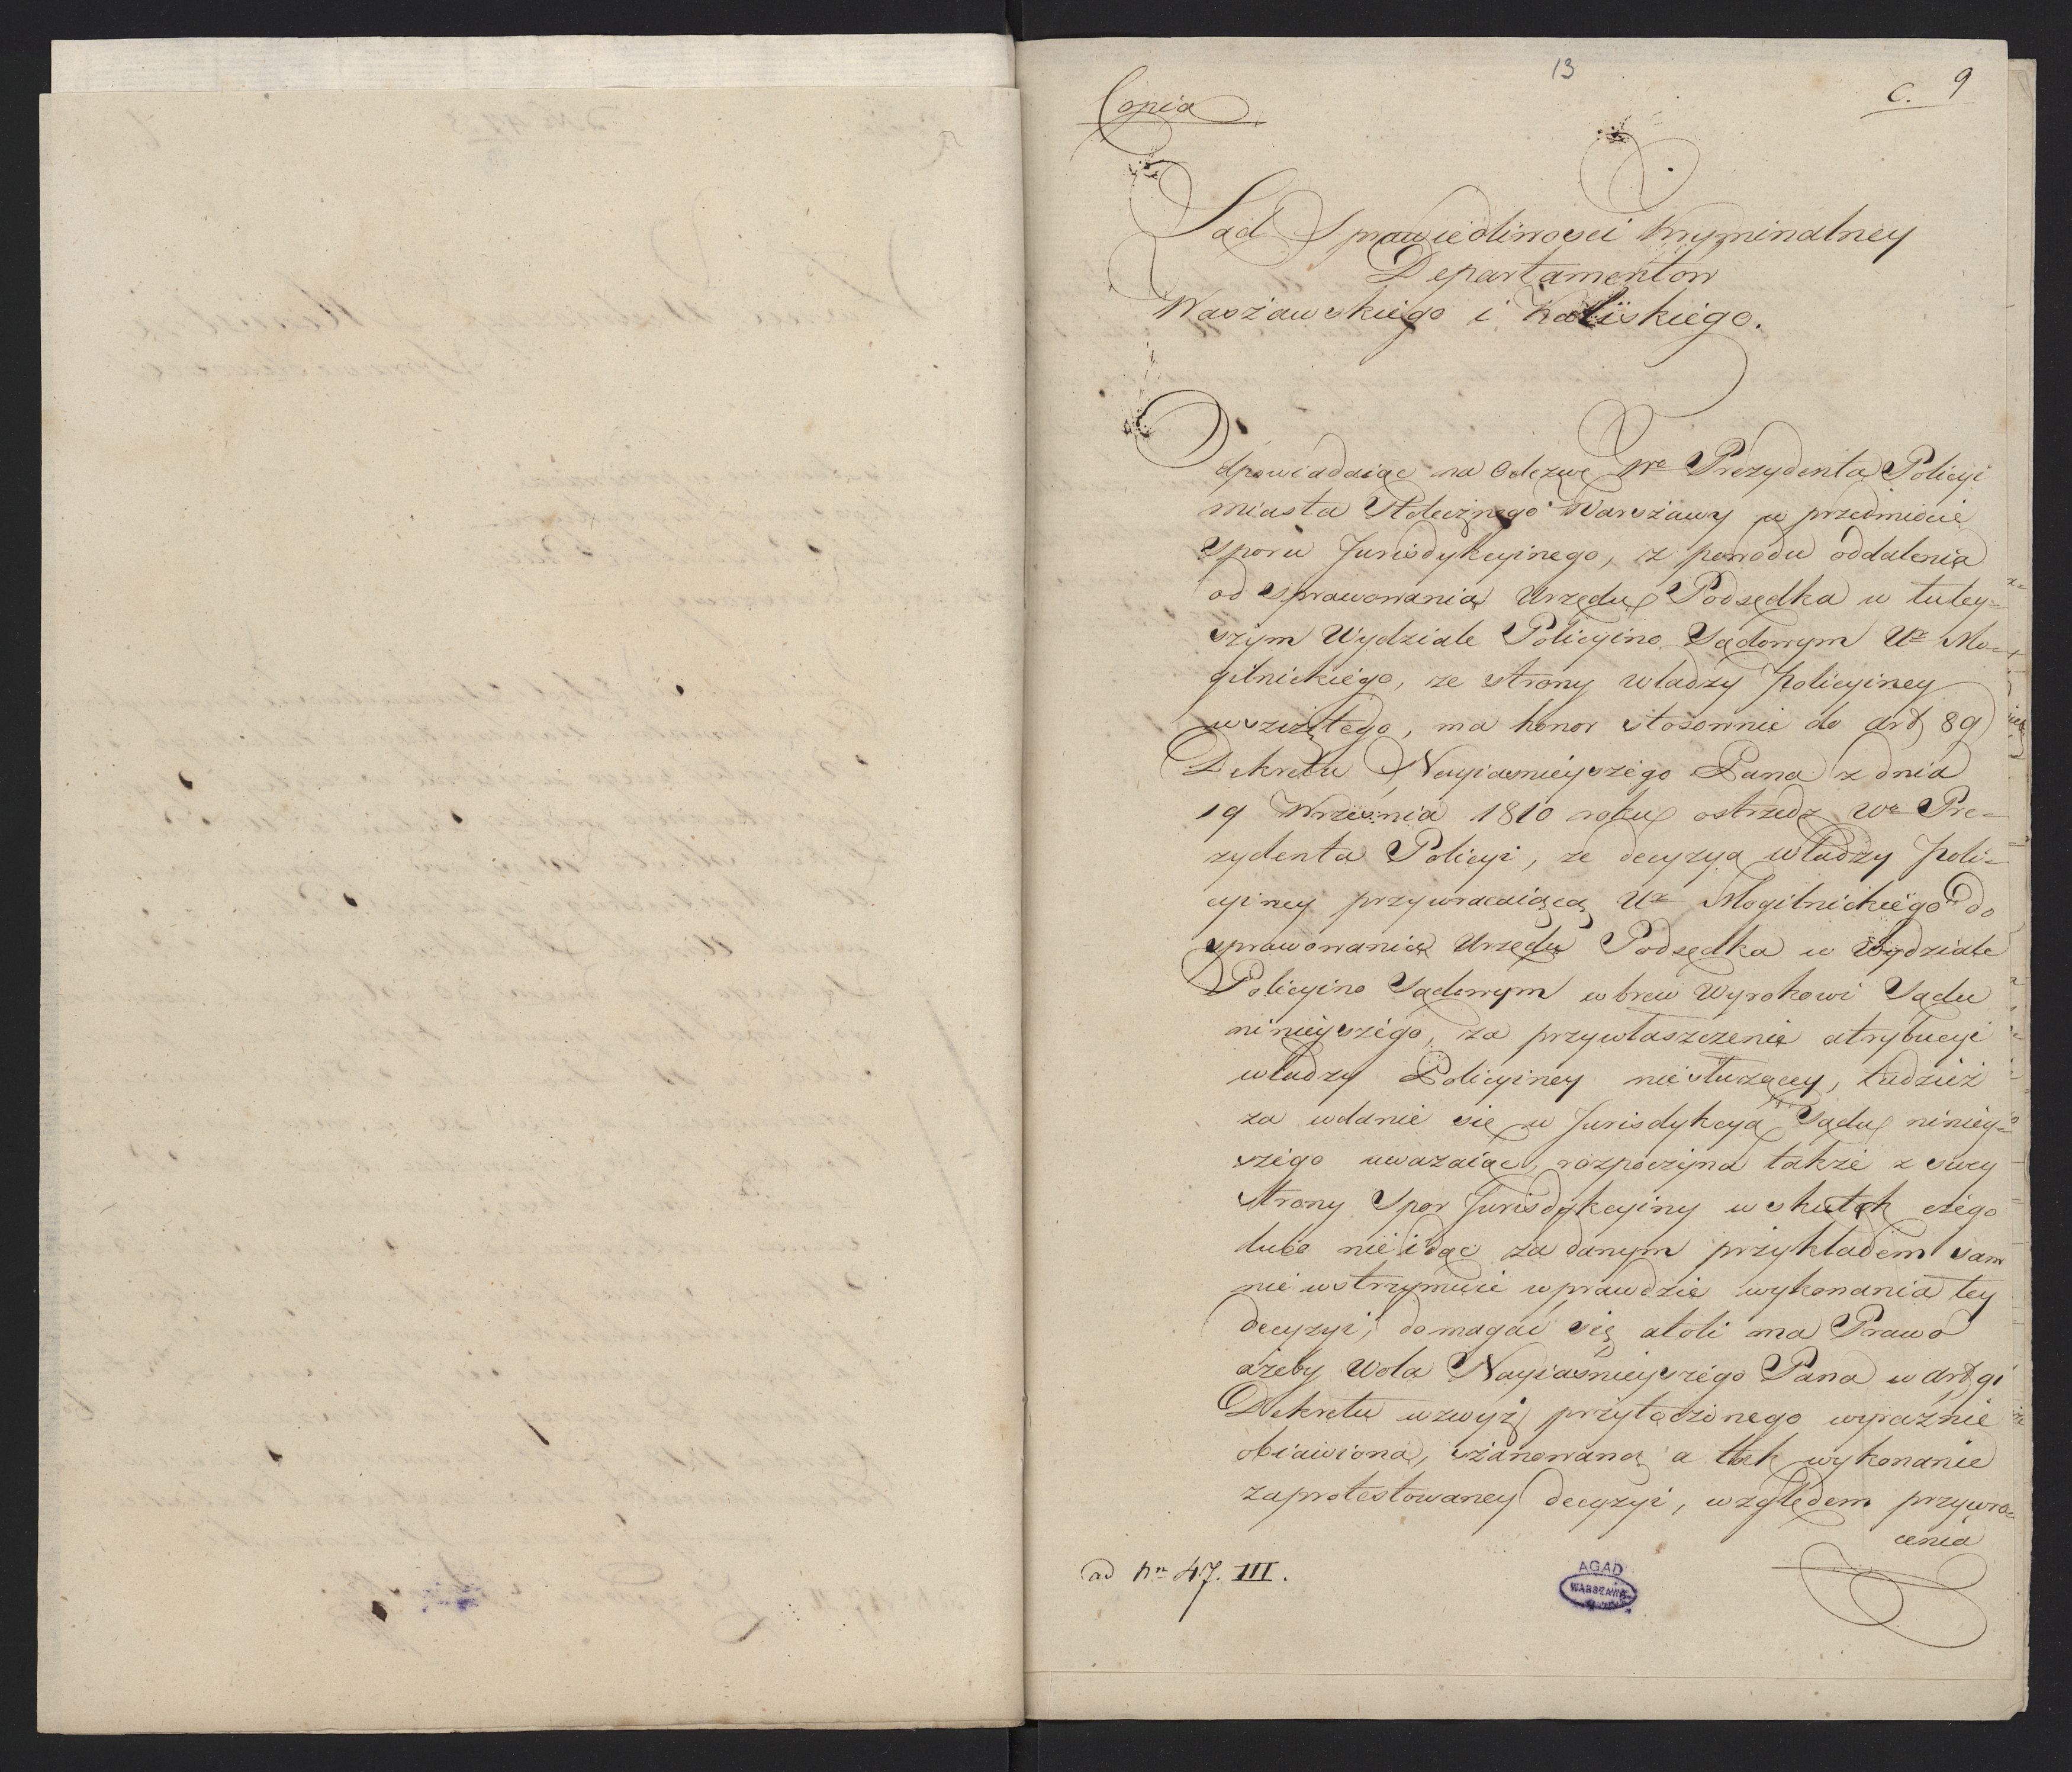 13
C. 9
Copia
Sąd Sprawiedliwości Kryminalney
Departamentow
Waszawskiego i Kaliskiego.
Odpowiadaiąc na Odezwę Wo Prezydenta Policyi
miasta Stołecznego Warszawy w przedmiocie
Sporu Jurisdykcyinego, z powodu oddalenia
od sprawowania Urzędu Podsędka w tutey=
szym Wydziale Policyino Sądowym Ur Mo=
gilnickiego, ze strony władzy Policyiney
wszczętego, ma honor stosownie do art 89
Dekretu Nayiasnieyszego Pana z dnia
19 Wrzesnia 1810 roku ostrzedz Wo Pre=
zydenta Policyi, że decyzya władzy Poli=
cyiney przywracaiącą Ur Mogilnickiego do
sprawowania Urzędu Podsędka w Wydziale
Policyino Sądowym wbrew Wyrokowi Sądu
ninieyszego, za przywłaszczenie atrybucyi
władzy Policyiney niesłużącey, tudzież
za wdanie się w Jurisdykcyą Sądu niniey=
szego uważaiąc, rozpoczyna także z swey
strony Spor Jurisdykcyiny w skutek czego
lubo nie idąc za danym przykładem sam
nie wstrzymuie wprawdzie wykonania tey
decyzyi, domagać się atoli ma Prawo
ażeby Wola Nayiaśnieyszego Pana w art 91
Dekretu wzwyż przytoczonego wyraźnie
obiawiona, szanowaną a tak wykonanie
zaprotestowaney decyzyi, względem przywro=
cenia
ad nr 47. III.
AGAD
WARSZAWA